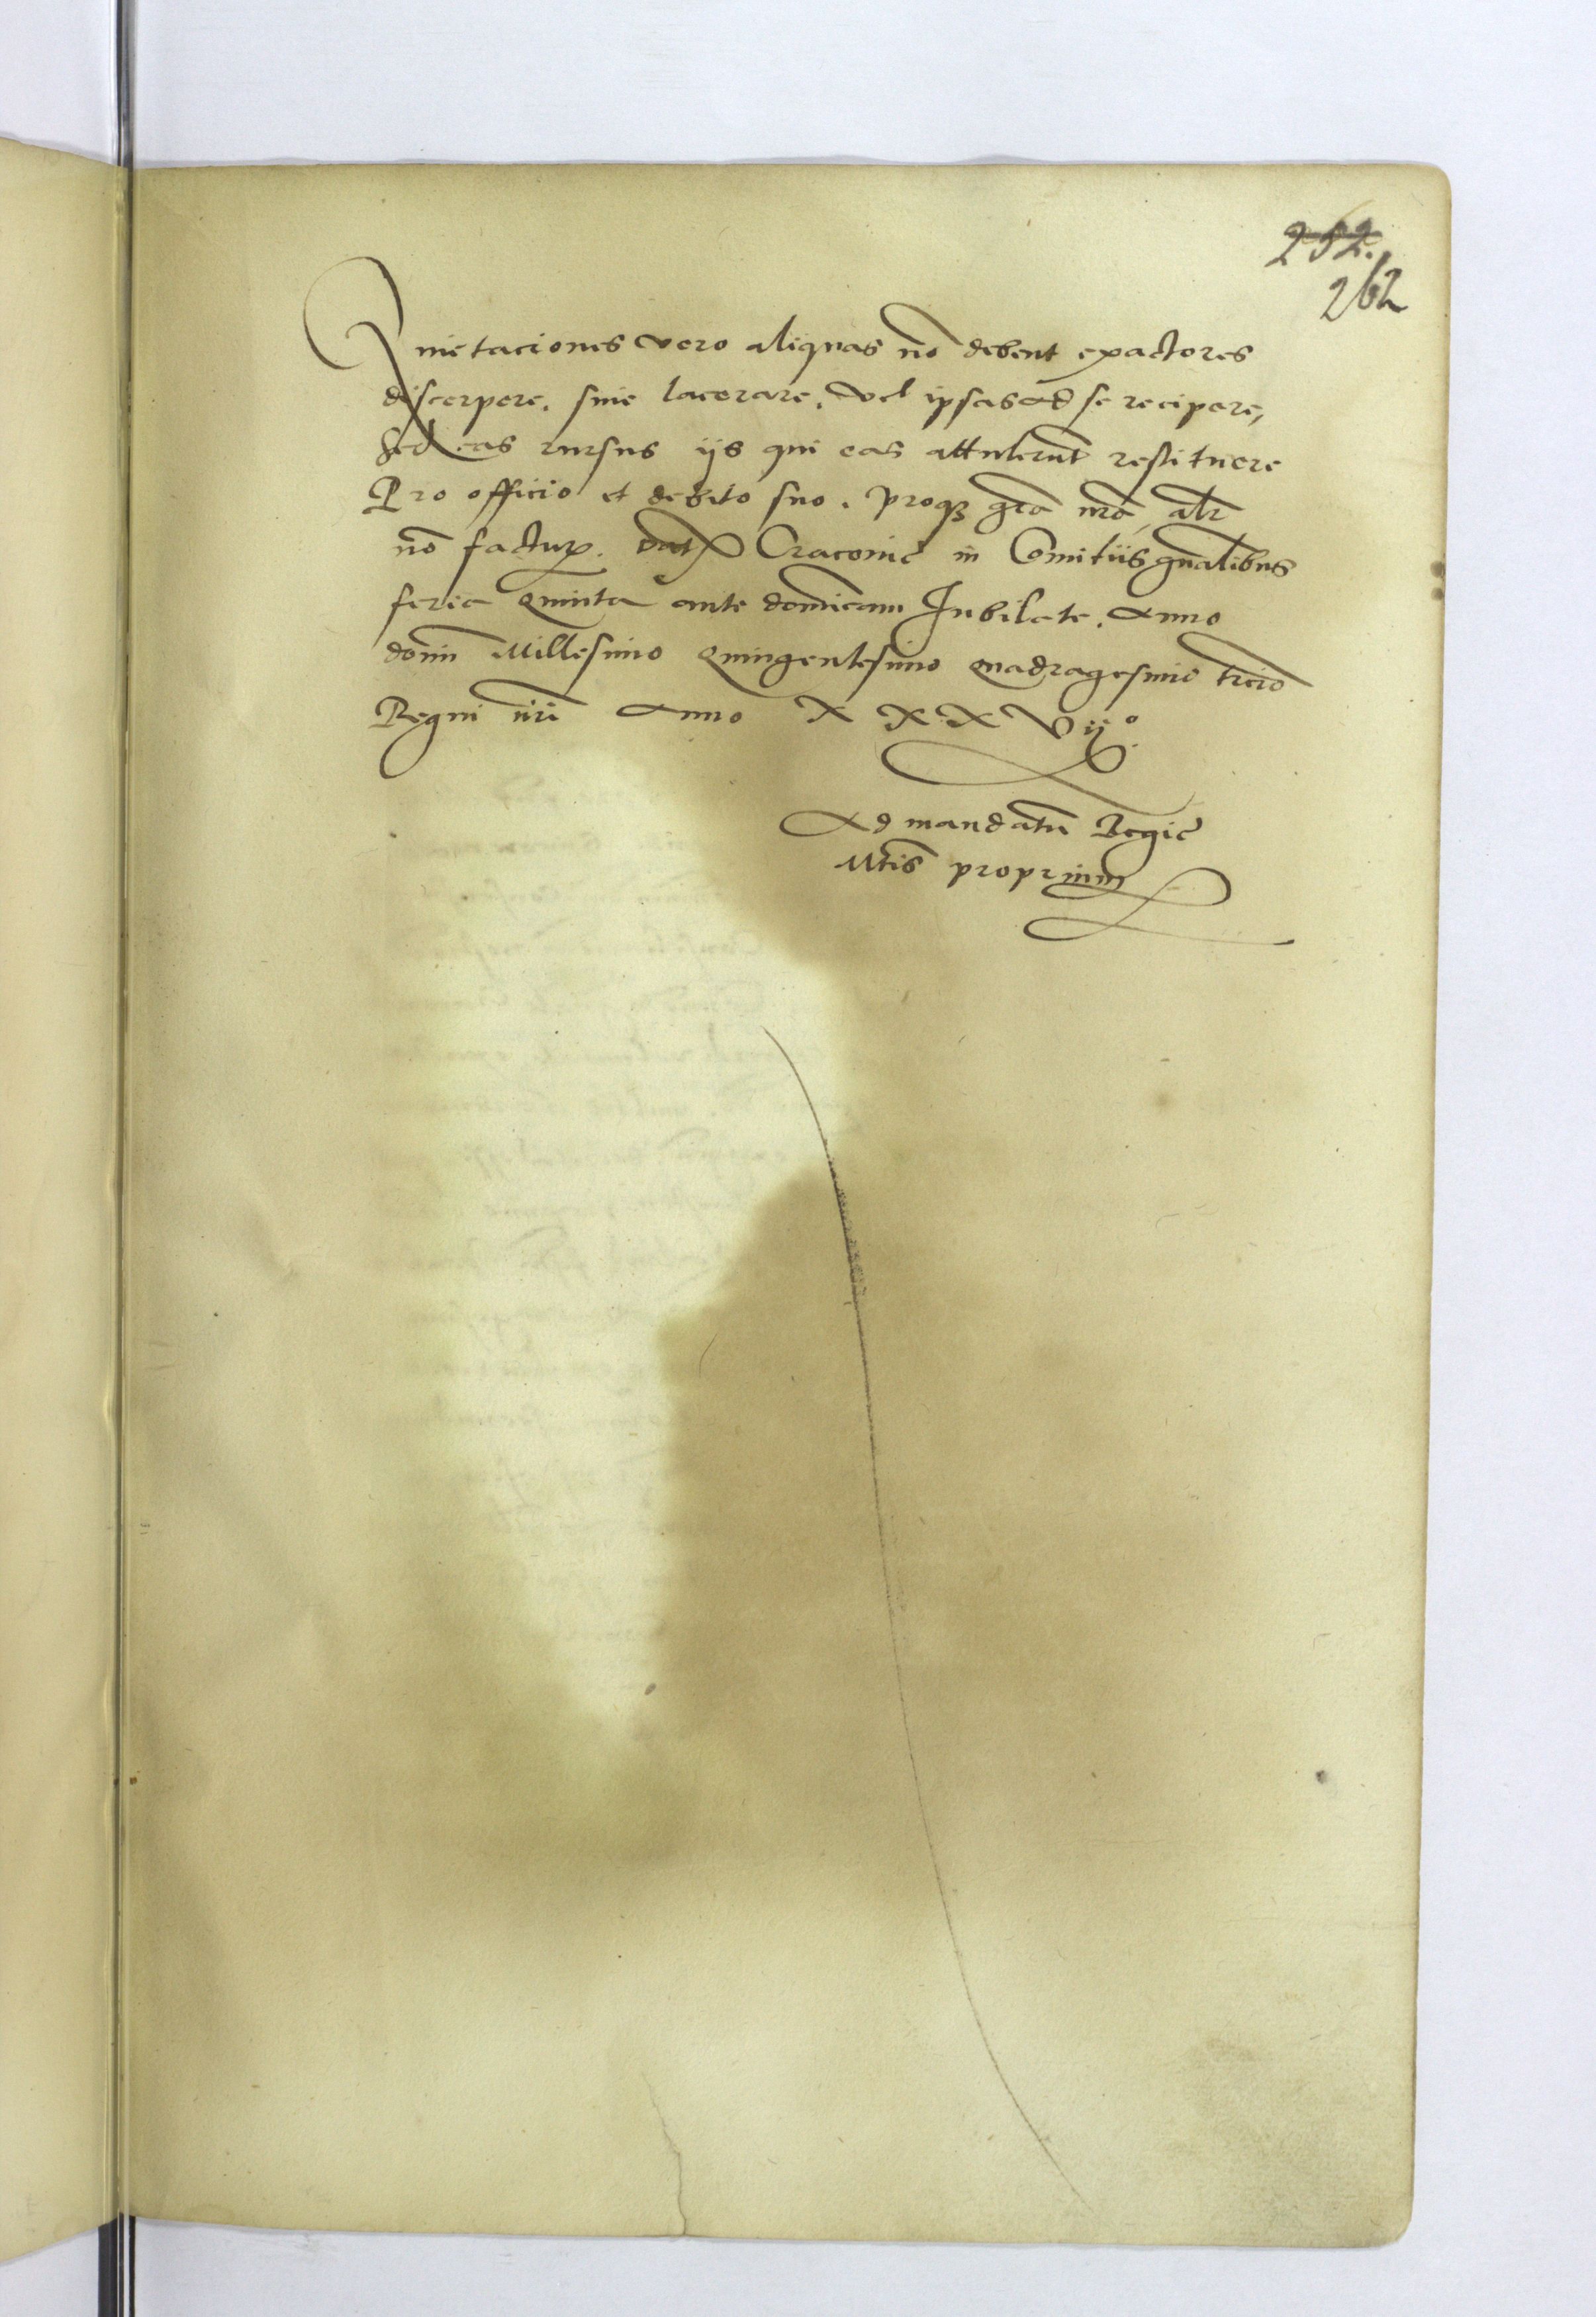 252.
262
Quietaciones vero aliquas nō debent exactores
discerpere. siue lacerare. vel ipsas ad se recipere,
Sed eas rursus ijs qui eas attulerūt restituere
Pro officio et debito suo. proqꝫ grā nrā, alr
nō facturꝭ. Datꝭ Cracovie in Comitiis gn̄alibus
feria Quinta ante domīcam Jubilate. Anno
domī Millesimo Quingentesimo quadragesimo trcio
Regni nrī Anno XXXVij°.
Ad mandatū Regie
Mtis proprium